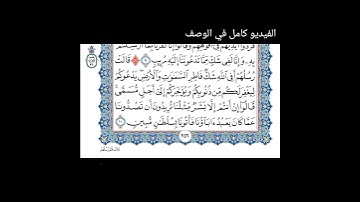 الفيديو كامل في الوصف
فردوا أيديهم في أفواههم وقالوا إنا كفرنا بما أرسلتم
به وإنا لفي شك مما تدعوننا إليه مريب ۝ قالت
رسلهم أفي الله شك فاطر السموت والأرض يدعوكم
ليغفر لكم من ذنوبكم ويؤخركم إلى أجل مسمى
قالوا إن أنتم إلا بشر مثلنا تريدون أن تصدونا
عما كان يعبد ءاباؤنا فأتونا بسلطن مبين ۝
٢٥٦